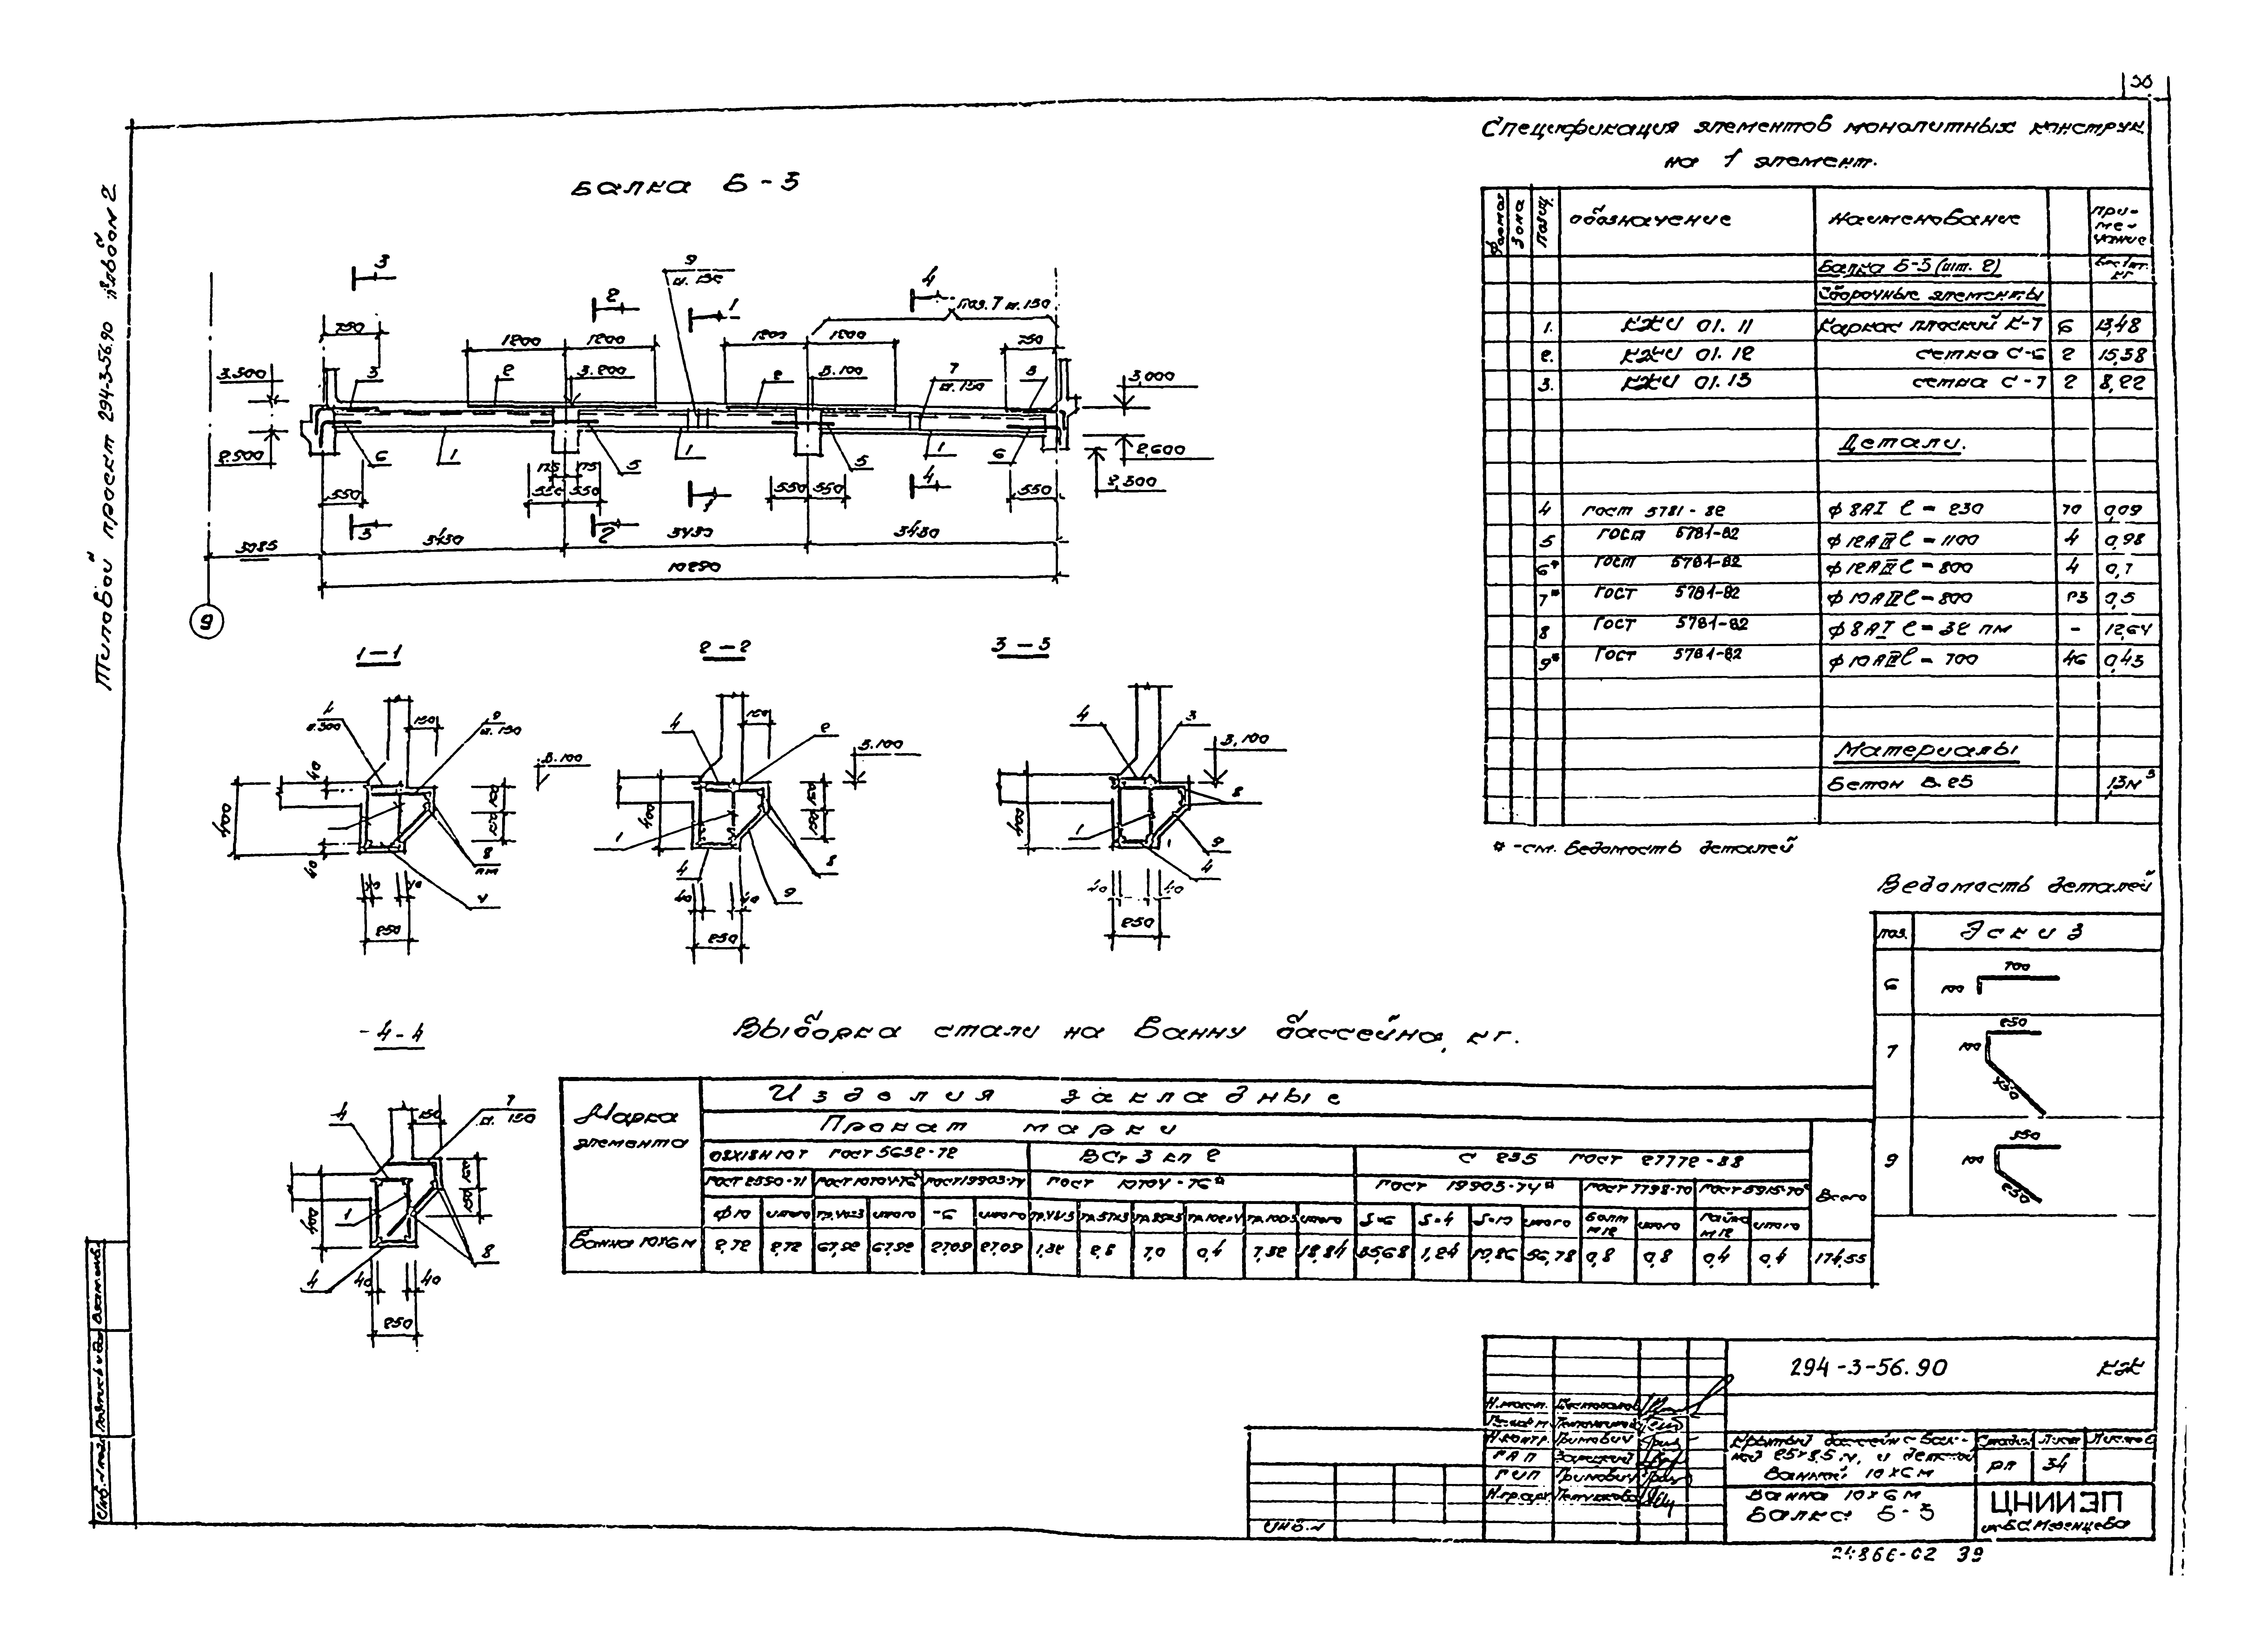 38
Типовой проект 294-3-56.90 Альбом 2
Балка Б-3
3
2
9
ш. 150
1
4
Поз. 7 ш. 150
250
1200 1200
1200 1200
250
3.300
3
2
3.200
2
3.100
7
ш. 150
3
3,000
2.500
6
1
5
1
5
1
6
2,600
2,300
175 175
550
550 550
550 550
550
3
2
1
4
3085
3430
3430
3430
10290
9
1-1
4
ш.300
9
ш. 150
150
3.100
40
400
150
150
40
8
пм
4
40 40
250
2-2
4
150
2
3.100
400
150
150
1
8
4
9
40 40
250
3-3
4
3
3,100
8
400
1
9
4
40 40
250
4-4
4
150
7
ш. 150
400
150
150
1
8
4
40 40
250
Спецификация элементов монолитных конструк
на 1 элемент.
Формат Зона Позиц. Обозначение Наименование При-
ме-
чание
Балка Б-3 (шт. 2) Вес 1 шт. кг
Сборочные элементы
1. КЖИ 01. 11 Каркас плоский К-7 6 13,48
2. КЖИ 01. 12 сетка С-6 2 15,38
3. КЖИ 01. 13 сетка С-7 2 8,22
Детали.
4 ГОСТ 5781-82 ф 8АI ℓ = 230 70 0,09
5 ГОСТ 5781-82 ф 12АIII ℓ = 1100 4 0,98
6* ГОСТ 5781-82 ф 12АIII ℓ = 800 4 0,7
7* ГОСТ 5781-82 ф 10АIII ℓ = 800 23 0,5
8 ГОСТ 5781-82 ф 8АI ℓ = 32 пм - 12,64
9* ГОСТ 5781-82 ф 10АIII ℓ = 700 46 0,43
Материалы
Бетон В.25 1,3м³
* -см. Ведомость деталей
Ведомость деталей
поз. Эскиз
6 700 100
7 250 100 450
9 350 100 250
Выборка стали на Ванну бассейна, кг.
Марка
элемента
Изделия закладные
Прокат марки
08Х18Н10Т ГОСТ 5632-72 ВСт 3 кп 2 С 235 ГОСТ 27772-88
ГОСТ 2590-71 ГОСТ 10704-76* ГОСТ 19903-74 ГОСТ 10704-76* ГОСТ 19903-74* ГОСТ 7798-70 ГОСТ 5915-70* Всего
ф10 итого тр.44х3 итого -6 итого тр.44х3 тр.57х3 тр.85х3 тр.102х4 тр.100х3 итого S=6 S=4 S=10 итого Болт М12 итого Гайка М12 итого
Ванна 10х6м 2,72 2,72 67,92 67,92 27,09 27,09 1,32 2,8 7,0 0,4 7,32 18,84 35,68 1,24 19,86 56,78 0,8 0,8 0,4 0,4 174,55
294-3-56.90 КЖ
Н.контр. Гримович
ГАП
ГИП Гримович
Крытый бассейн с Ван-
ной 25х8,5 м. и детской
Ванной 10х6 м
Стадия Лист Листов
РП 34
Ванна 10х6 м
Балка Б-3
ЦНИИЭП
им.Б.С.Мезенцева
Инв.№
Инв.№ подл. Подпись и дата Взам.инв.№
24866-02 39